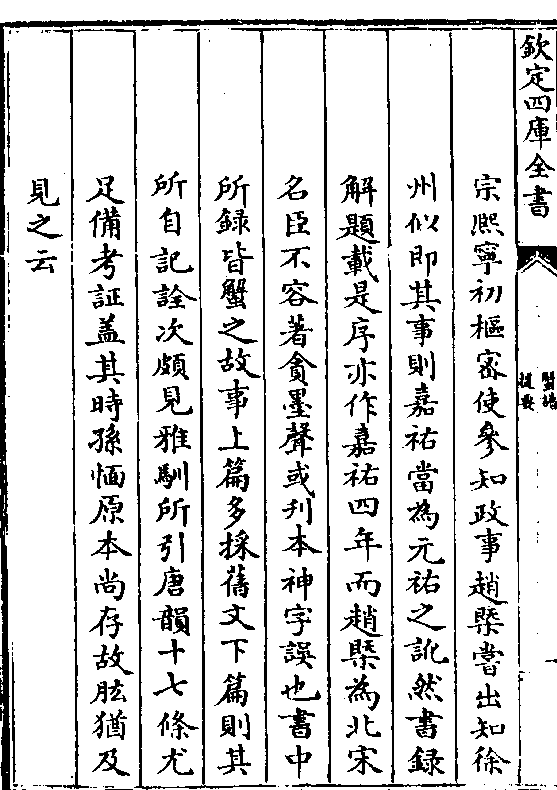 欽定四庫全書
蟹譜
提要
宗熙寧初樞密使參知政事趙槩嘗出知徐
州似即其事則嘉祐當為元祐之訛然書録
解題載是序亦作嘉祐四年而趙槩為北宋
名臣不容著貪墨聲或刋本神字誤也書中
所録皆蟹之故事上篇多採舊文下篇則其
所自記詮次頗見雅馴所引唐韻十七條尤
足備考証蓋其時孫愐原本尚存故肱猶及
見之云